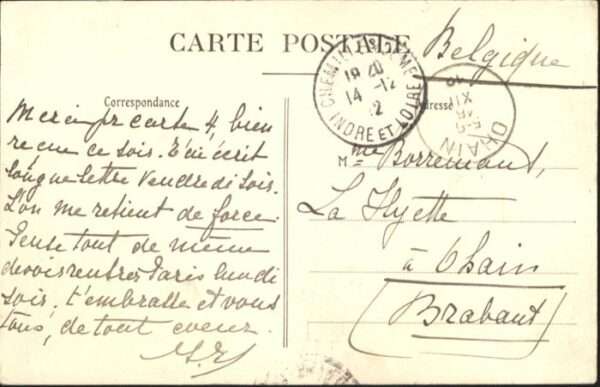 CARTE POSTALE
Belgique
Correspondance
Adresse
CHEMILLE-S-DEME
18 20
14 -12
12
INDRE ET LOIRE
OHAIN
XII
Merci pr carte 4, bien
reçue ce soir. T'ai écrit
longue lettre vendredi soir.
L'on me retient de force.
Pense tout de même
devoir rentrer Paris lundi
soir. t'embrasse et vous
tous, de tout coeur.
M me Borremans,
La Hyette
à Ohain
(Brabant)